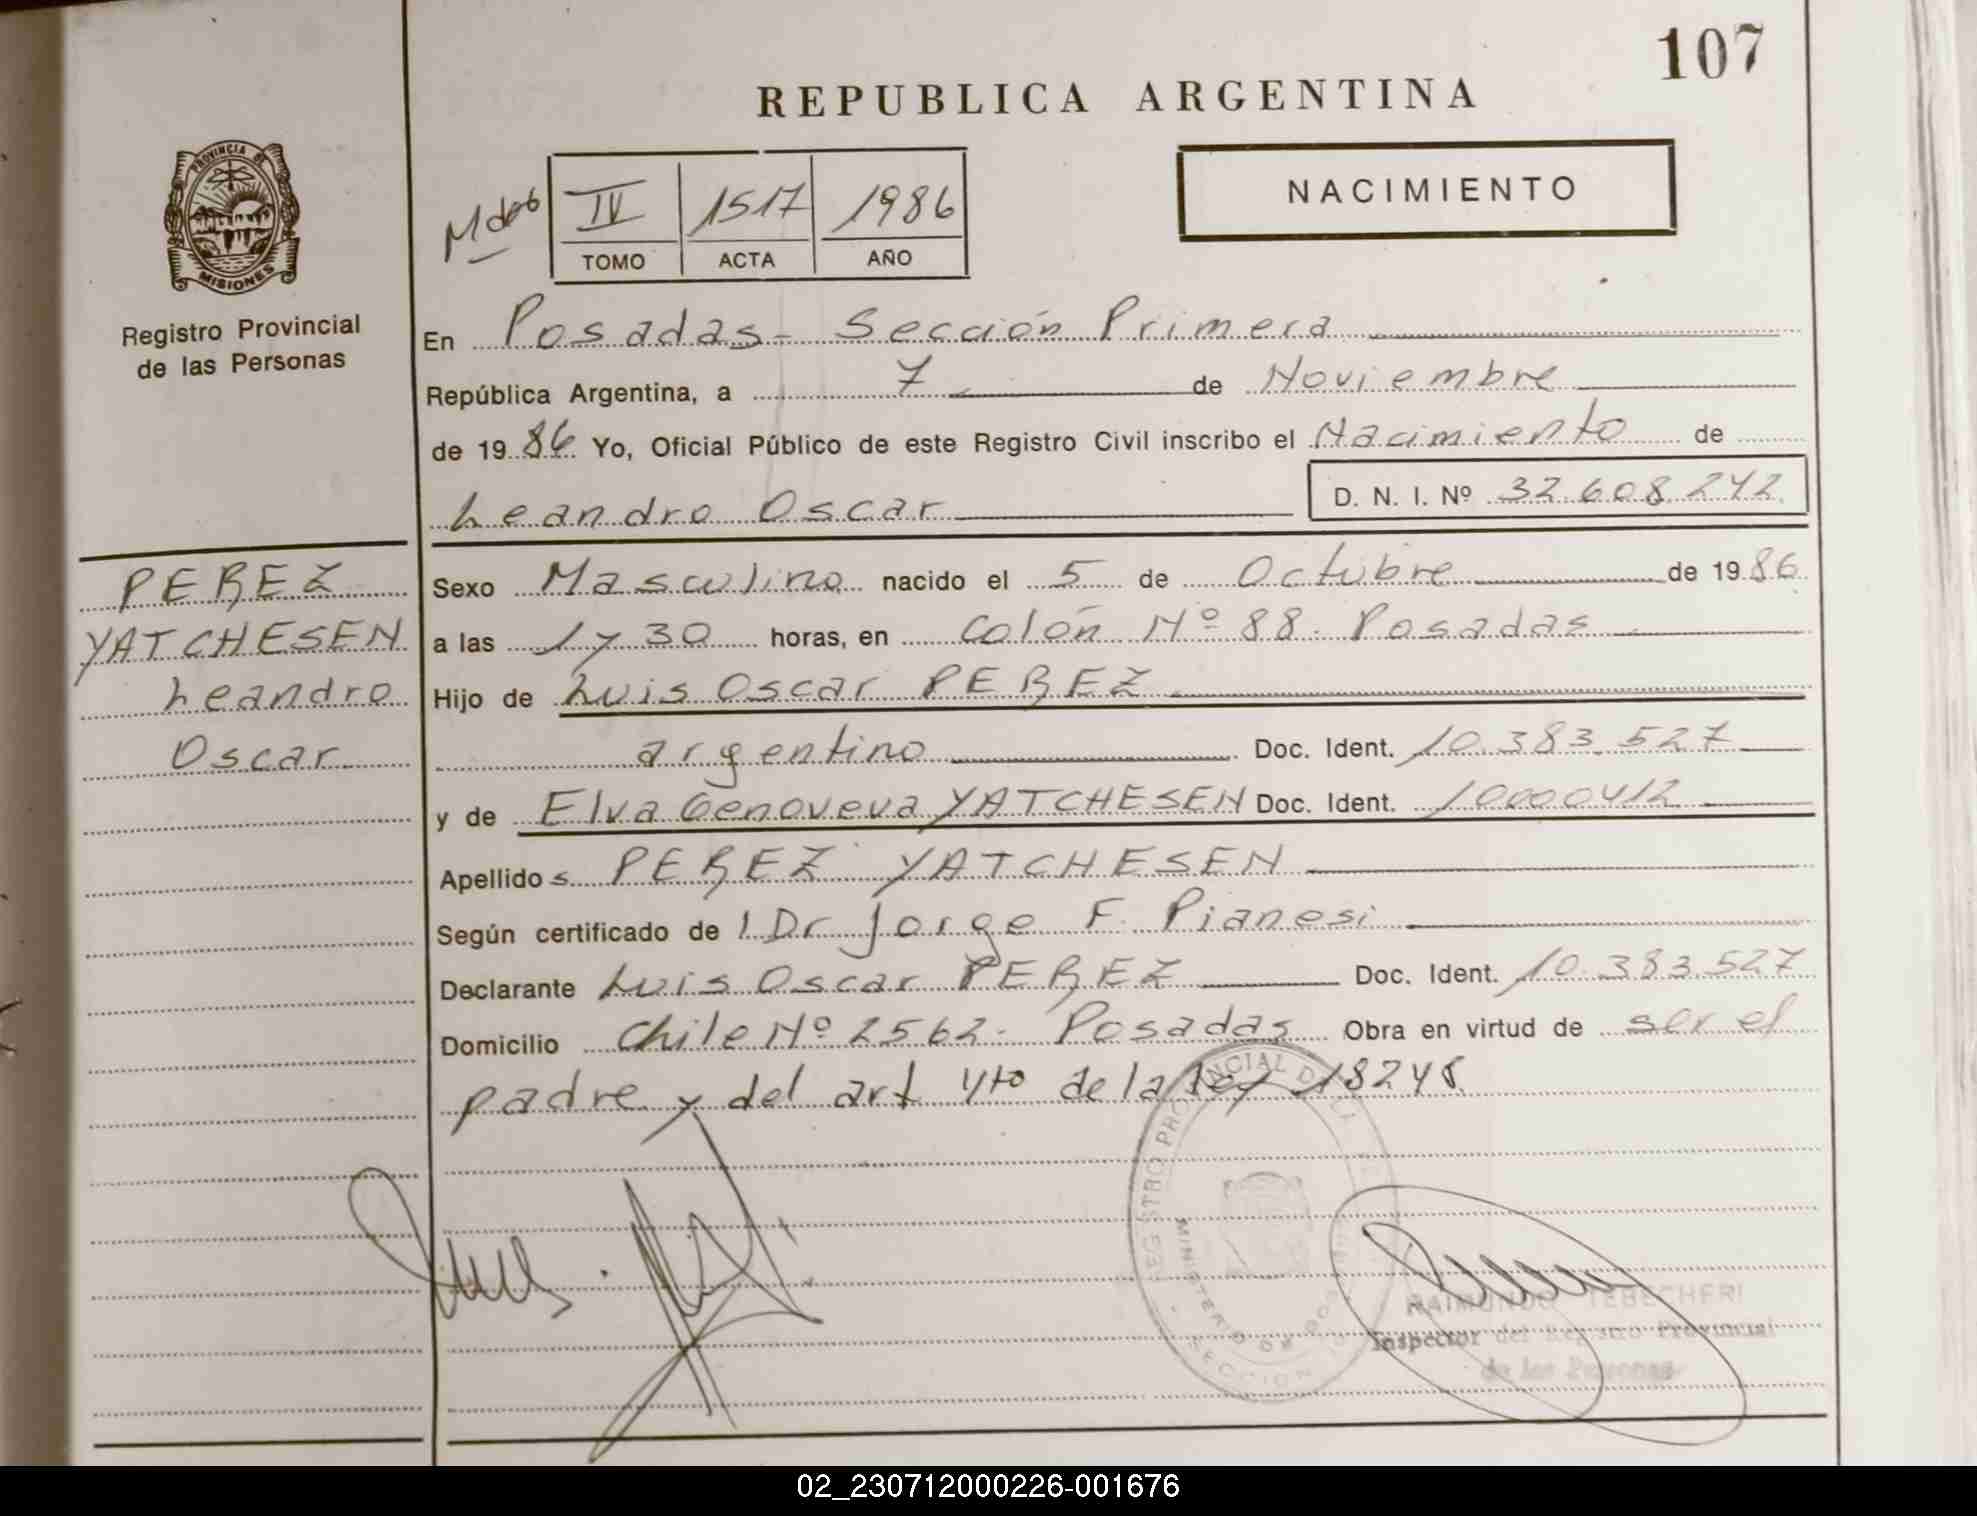 107
REPUBLICA ARGENTINA
PROVINCIA DE
MISIONES
Registro Provincial
de las Personas
NACIMIENTO
IV 1517 1986
TOMO ACTA AÑO
En Posadas - Sección Primera
República Argentina, a 7 de Noviembre
de 1986 Yo, Oficial Público de este Registro Civil inscribo el Nacimiento de
Leandro Oscar D. N. I. Nº 32.608.242
PEREZ
YATCHESEN
Leandro
Oscar
Sexo Masculino nacido el 5 de Octubre de 1986
a las 1 y 30 horas, en Colón Nº 88. Posadas
Hijo de Luis Oscar PEREZ
argentino Doc. Ident. 10.383.527
y de Elva Genoveva YATCHESEN Doc. Ident. 10000412
Apellidos PEREZ YATCHESEN
Según certificado de l Dr Jorge F. Pianesi
Declarante Luis Oscar PEREZ Doc. Ident. 10.383.527
Domicilio Chile Nº 2562. Posadas Obra en virtud de ser el
padre y del art 4to de la ley 18248
RAIMUNDO TEBECHERI
Inspector del Registro Provincial
de las Personas
02_230712000226-001676